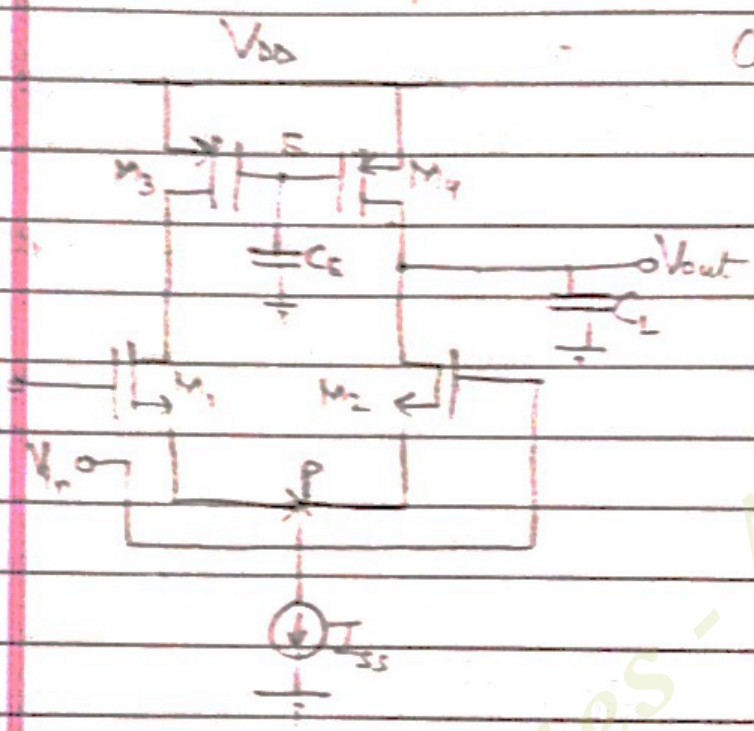 VDD
M3
E
M4
CE
Vout
CL
M1
M2
Vin
P
ISS